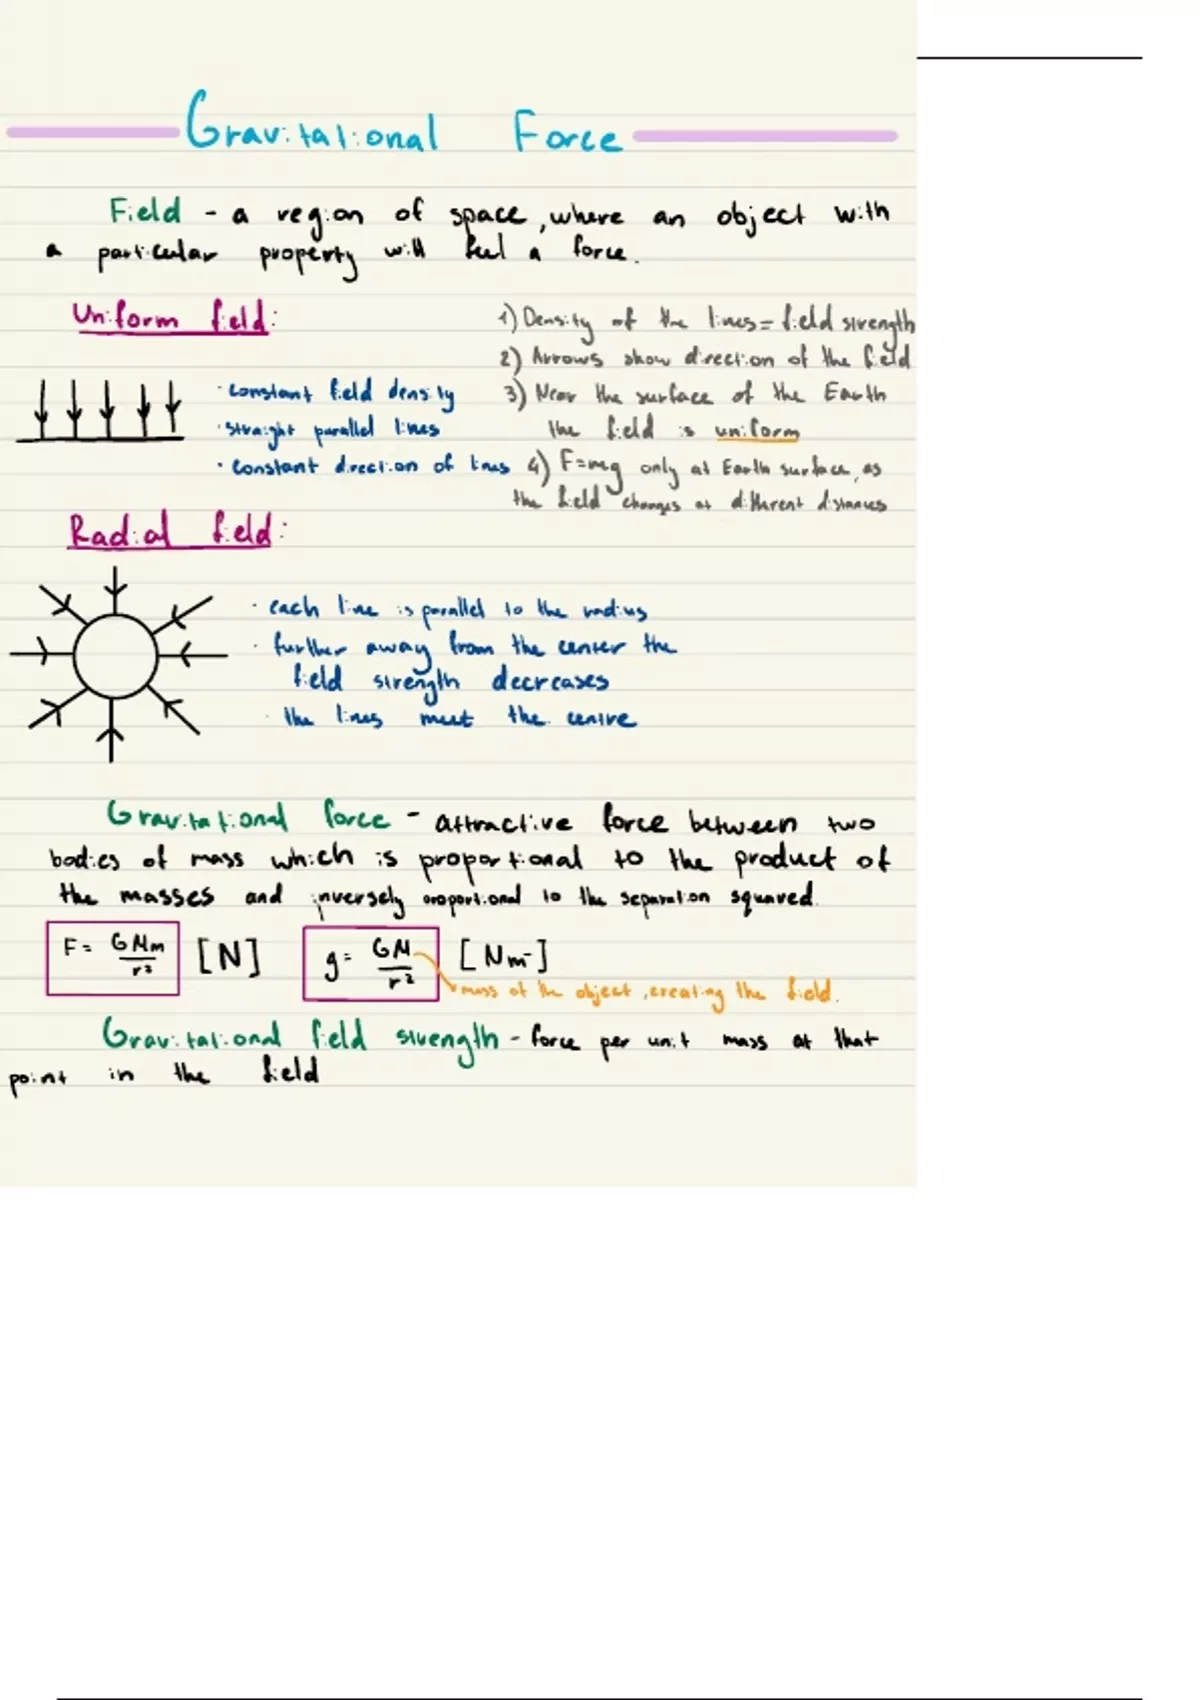 Gravitational Force
Field - a region of space, where an object with
a particular property will feel a force.
Uniform field:
· constant field density
· straight parallel lines
· constant direction of lines
1) Density of the lines = field strength
2) Arrows show direction of the field
3) Near the surface of the Earth
the field is uniform
4) F=mg only at Earth surface, as
the field changes at different distances
Radial field:
· each line is parallel to the radius
· further away from the center the
field strength decreases
· the lines meet the centre
Gravitational force - attractive force between two
bodies of mass which is proportional to the product of
the masses and inversely proportional to the separation squared.
F = GMm/r² [N] g = GM/r² [Nm⁻]
mass of the object, creating the field.
Gravitational field strength - force per unit mass at that
point in the field